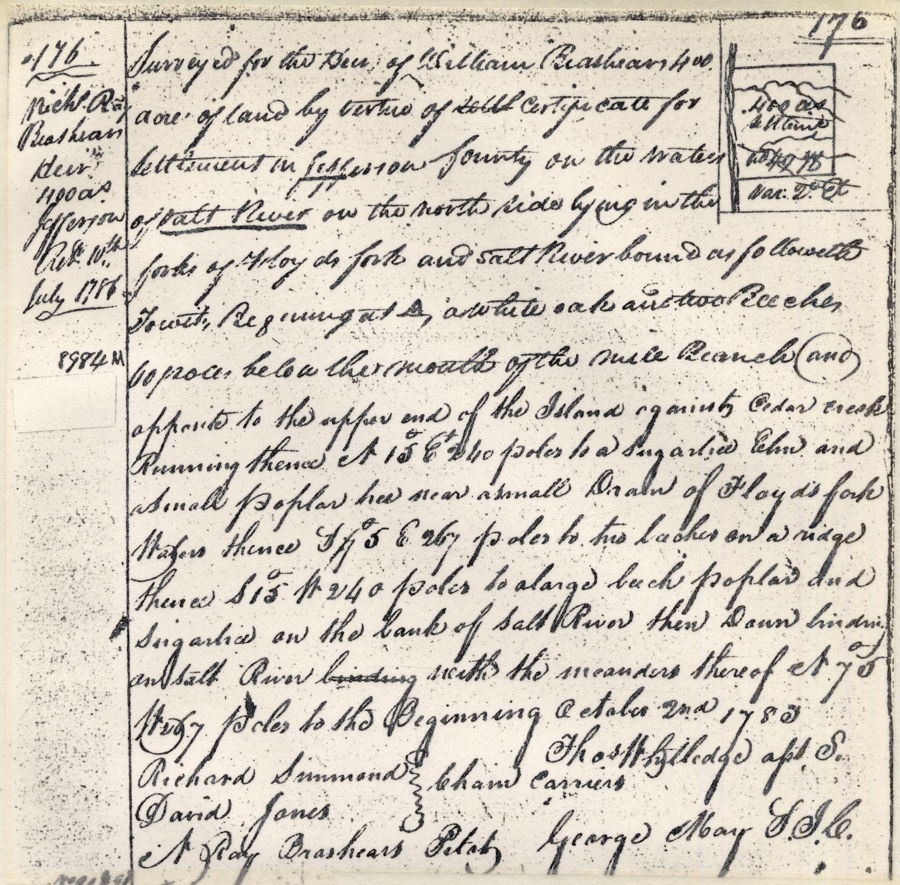 176
176
Richd Ray
Brashears
Heir
400 as.
Jefferson
Retd. 10th
July 1786
8984 M
400 as
settlemt
Var. 2° Et
Surveyed for the Heir of William Brashears 400
acres of land by vertue of Certificate for
Settlement in Jefferson County on the waters
of Salt River on the north side lying in the
forks of Floyds fork and Salt River bound as followeth
Towit, Begining at a white oak and two Beeches
60 poces below the mouth of the mill Branch and
opposite to the upper end of the Island against Cedar creek
Running thence N 15° Et 240 poles to a sugartree Elm and
a small poplar tree near a small Drain of Floyds fork
Waters thence S 75° E 267 poles to two beeches on a ridge
thence S 15° W 240 poles to a large beech poplar and
Sugartree on the bank of Salt River then Down binding
on Salt River binding with the meanders thereof N 75°
W 267 poles to the Beginning October 2nd 1783
Thos Whitledge apt S.
Richard Simmond
Chain Carriers
David Jones
N Ray Brashears Pilot
George May S.J.C.